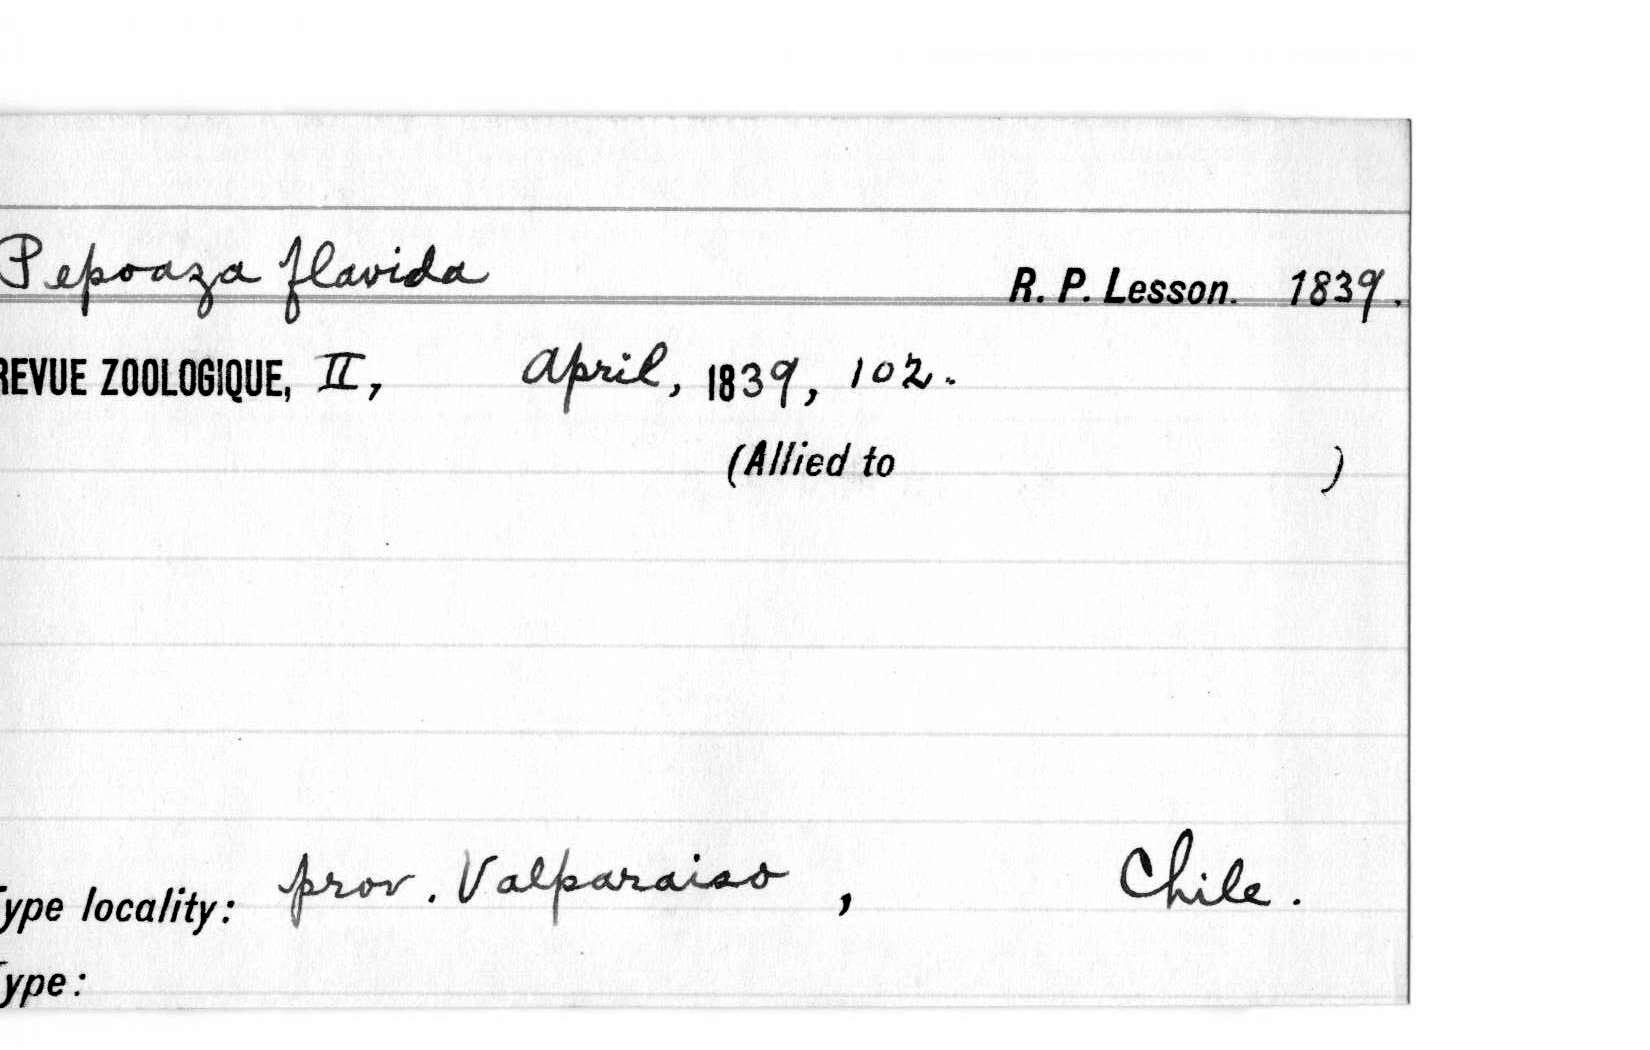 Pepoaza flavida R. P. Lesson. 1839.
REVUE ZOOLOGIQUE, II, April, 1839, 102.
(Allied to )
Type locality: prov. Valparaiso, Chile.
Type: